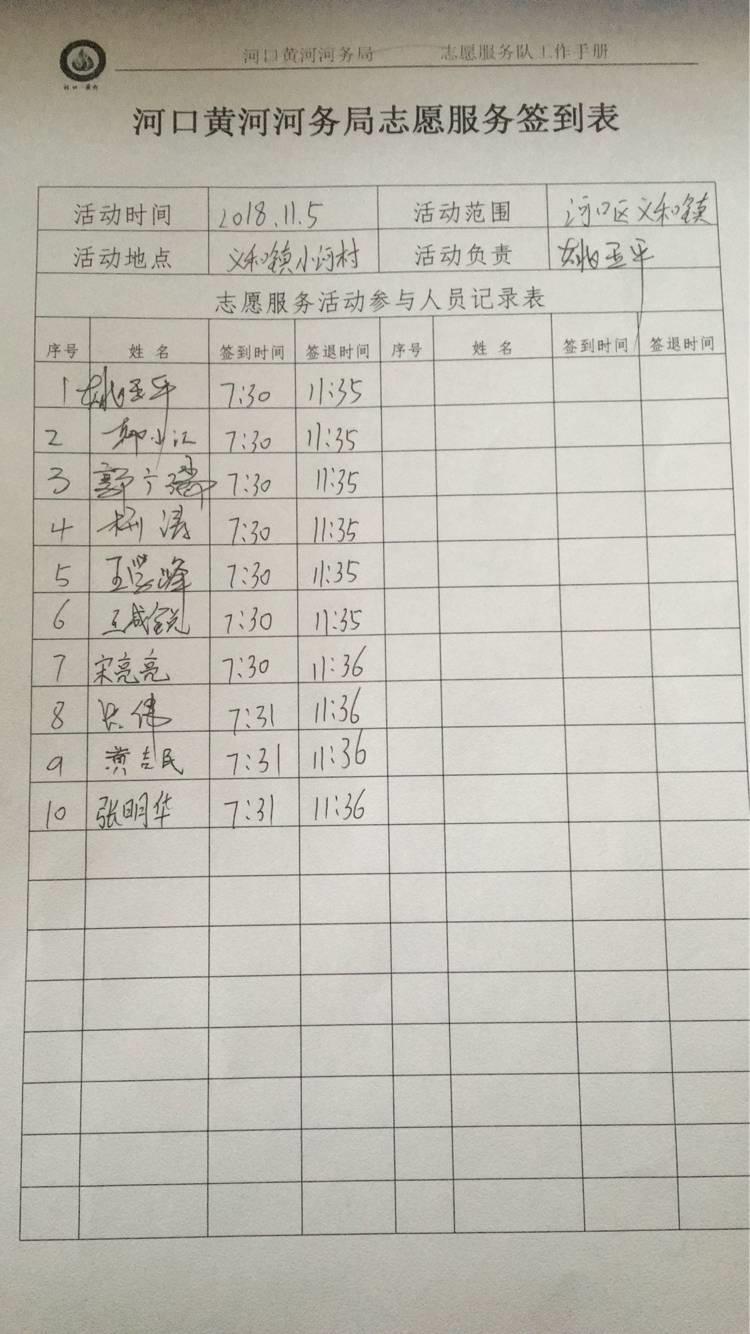 河口黄河河务局 志愿服务队工作手册
河口黄河河务局志愿服务签到表
活动时间 2018.11.5 活动范围 河口区义和镇
活动地点 义和镇小河村 活动负责 姚亚平
志愿服务活动参与人员记录表
序号 姓名 签到时间 签退时间 序号 姓名 签到时间 签退时间
1 姚亚平 7:30 11:35
2 7:30 11:35
3 7:30 11:35
4 7:30 11:35
5 7:30 11:35
6 王咸锐 7:30 11:35
7 宋亮亮 7:30 11:36
8 7:31 11:36
9 黄吉民 7:31 11:36
10 张明华 7:31 11:36